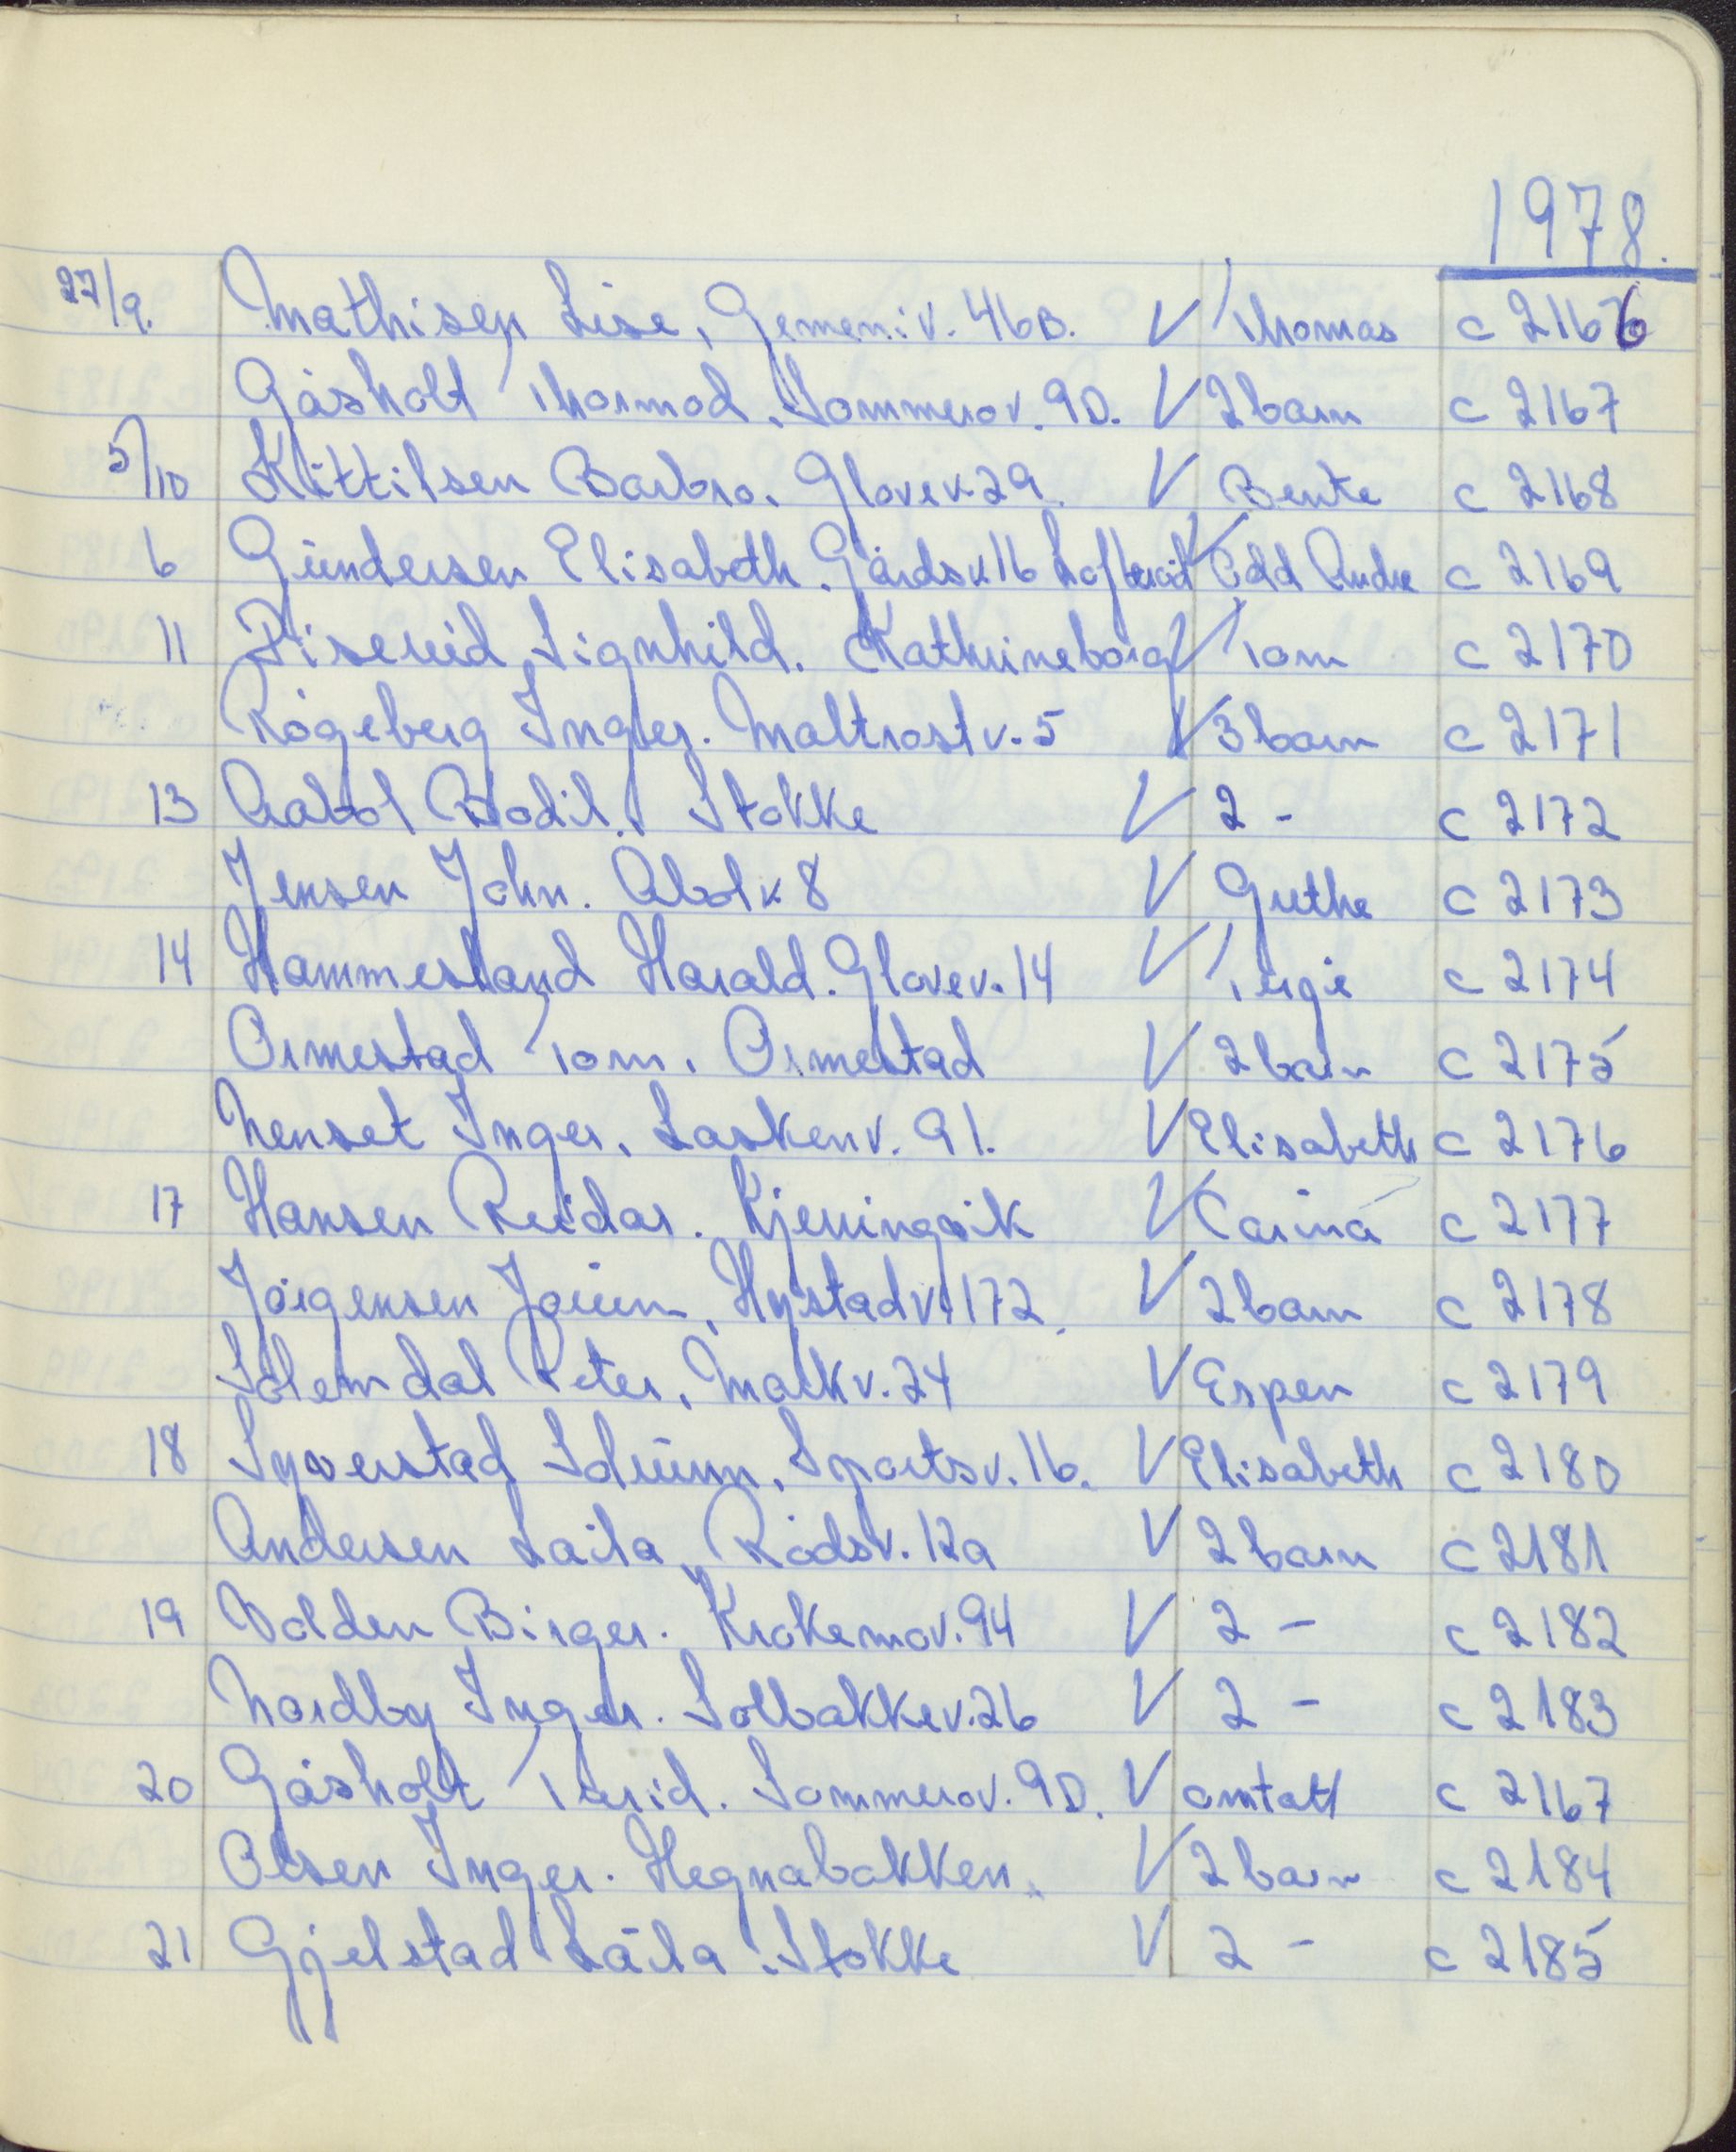 1978.
27/9. Mathisen Lise, Gemeniv. 46B. V Thomas c 2166
Gåsholt Thormod, Sommerov. 9D. V 2 barn c 2167
5/10 Kittilsen Barbro. Glovev 29. V Bente c 2168
6 Gundersen Elisabeth. Gårdsv 16 V Odd Andre c 2169
11 Riseuid Signhild. Kathrineborg V Tom c 2170
Rogeberg Inger. Maltrostv. 5 V 3 barn c 2171
13 Aabol Bodil. Stokke V 2 - c 2172
Jensen John. Abolv 8 V Grethe c 2173
14 Hammestand Harald. Glovev. 14 V Terje c 2174
Ormestad Tom. Ormestad V 2 barn c 2175
Nenset Inger. Laskenv. 91. V Elisabeth c 2176
17 Hansen Reidar. Kjerringvik V Carina c 2177
Jørgensen Jorunn, Hystadv. 172. V 2 barn c 2178
Solemdal Peter, Markv. 24 V Espen c 2179
18 Syverstad Idunn, Sportsv. 16. V Elisabeth c 2180
Andersen Laila, Rødsv. 12a V 2 barn c 2181
19 Volden Birger. Krokemov. 94 V 2 - c 2182
Nordby Inger. Solbakkev. 26 V 2 - c 2183
20 Gåsholt Turid. Sommerov. 9D. V omtatt c 2167
Olsen Inger. Hegnabakken. V 2 barn c 2184
21 Gjelstad Laila. Stokke V 2 - c 2185